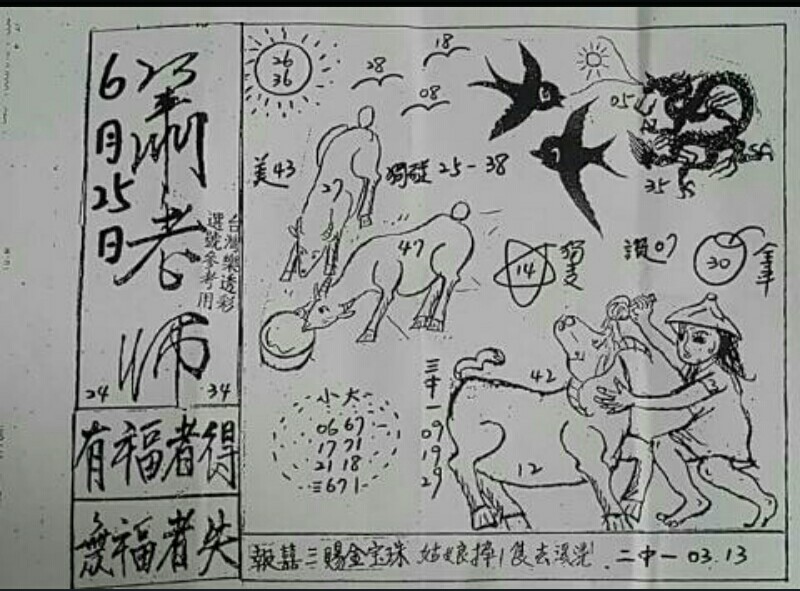 6月25日
蕭老师
台灣樂透彩
選號參考用
24 34
有福者得
無福者失
26
36
28
18
08
05
35
美43
27
獨碰25-38
47
14
獨支
讚07
30
全車
小大
06 67
17 71
21 18
三671
三中一
09
19
29
42
12
報喜三賜金宝珠 姑娘捧1隻去
二中一 03.13